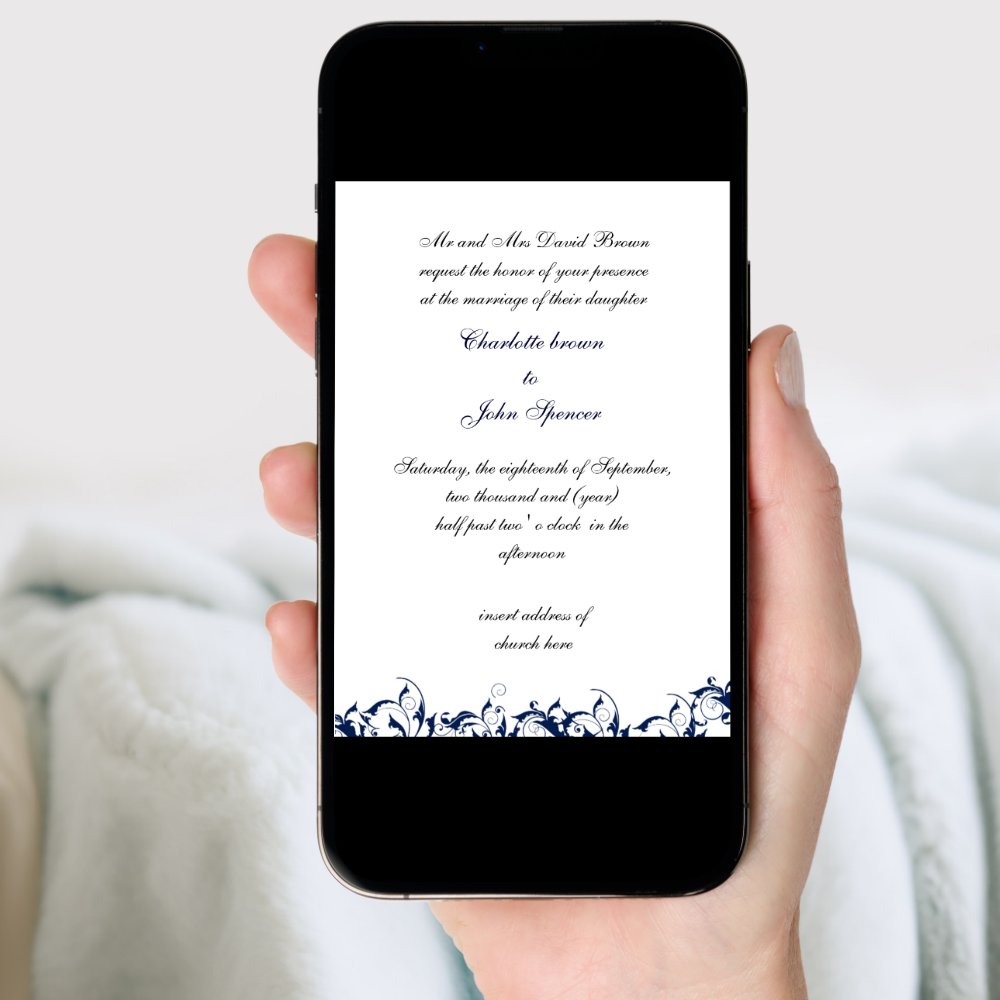 Mr and Mrs David Brown
request the honor of your presence
at the marriage of their daughter
Charlotte brown
to
John Spencer
Saturday, the eighteenth of September,
two thousand and (year)
half past two' o clock in the
afternoon
insert address of
church here